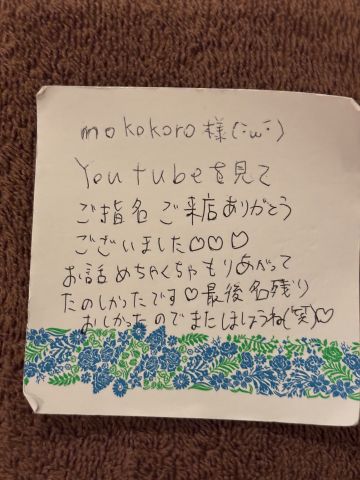 mokokoro様(˙ω˙)
Youtubeを見て
ご指名 ご来店ありがとう
ございました♡♡♡
お話めちゃくちゃもりあがって
たのしかったです♡最後名残り
おしかったのでまたしましょうね(笑)♡